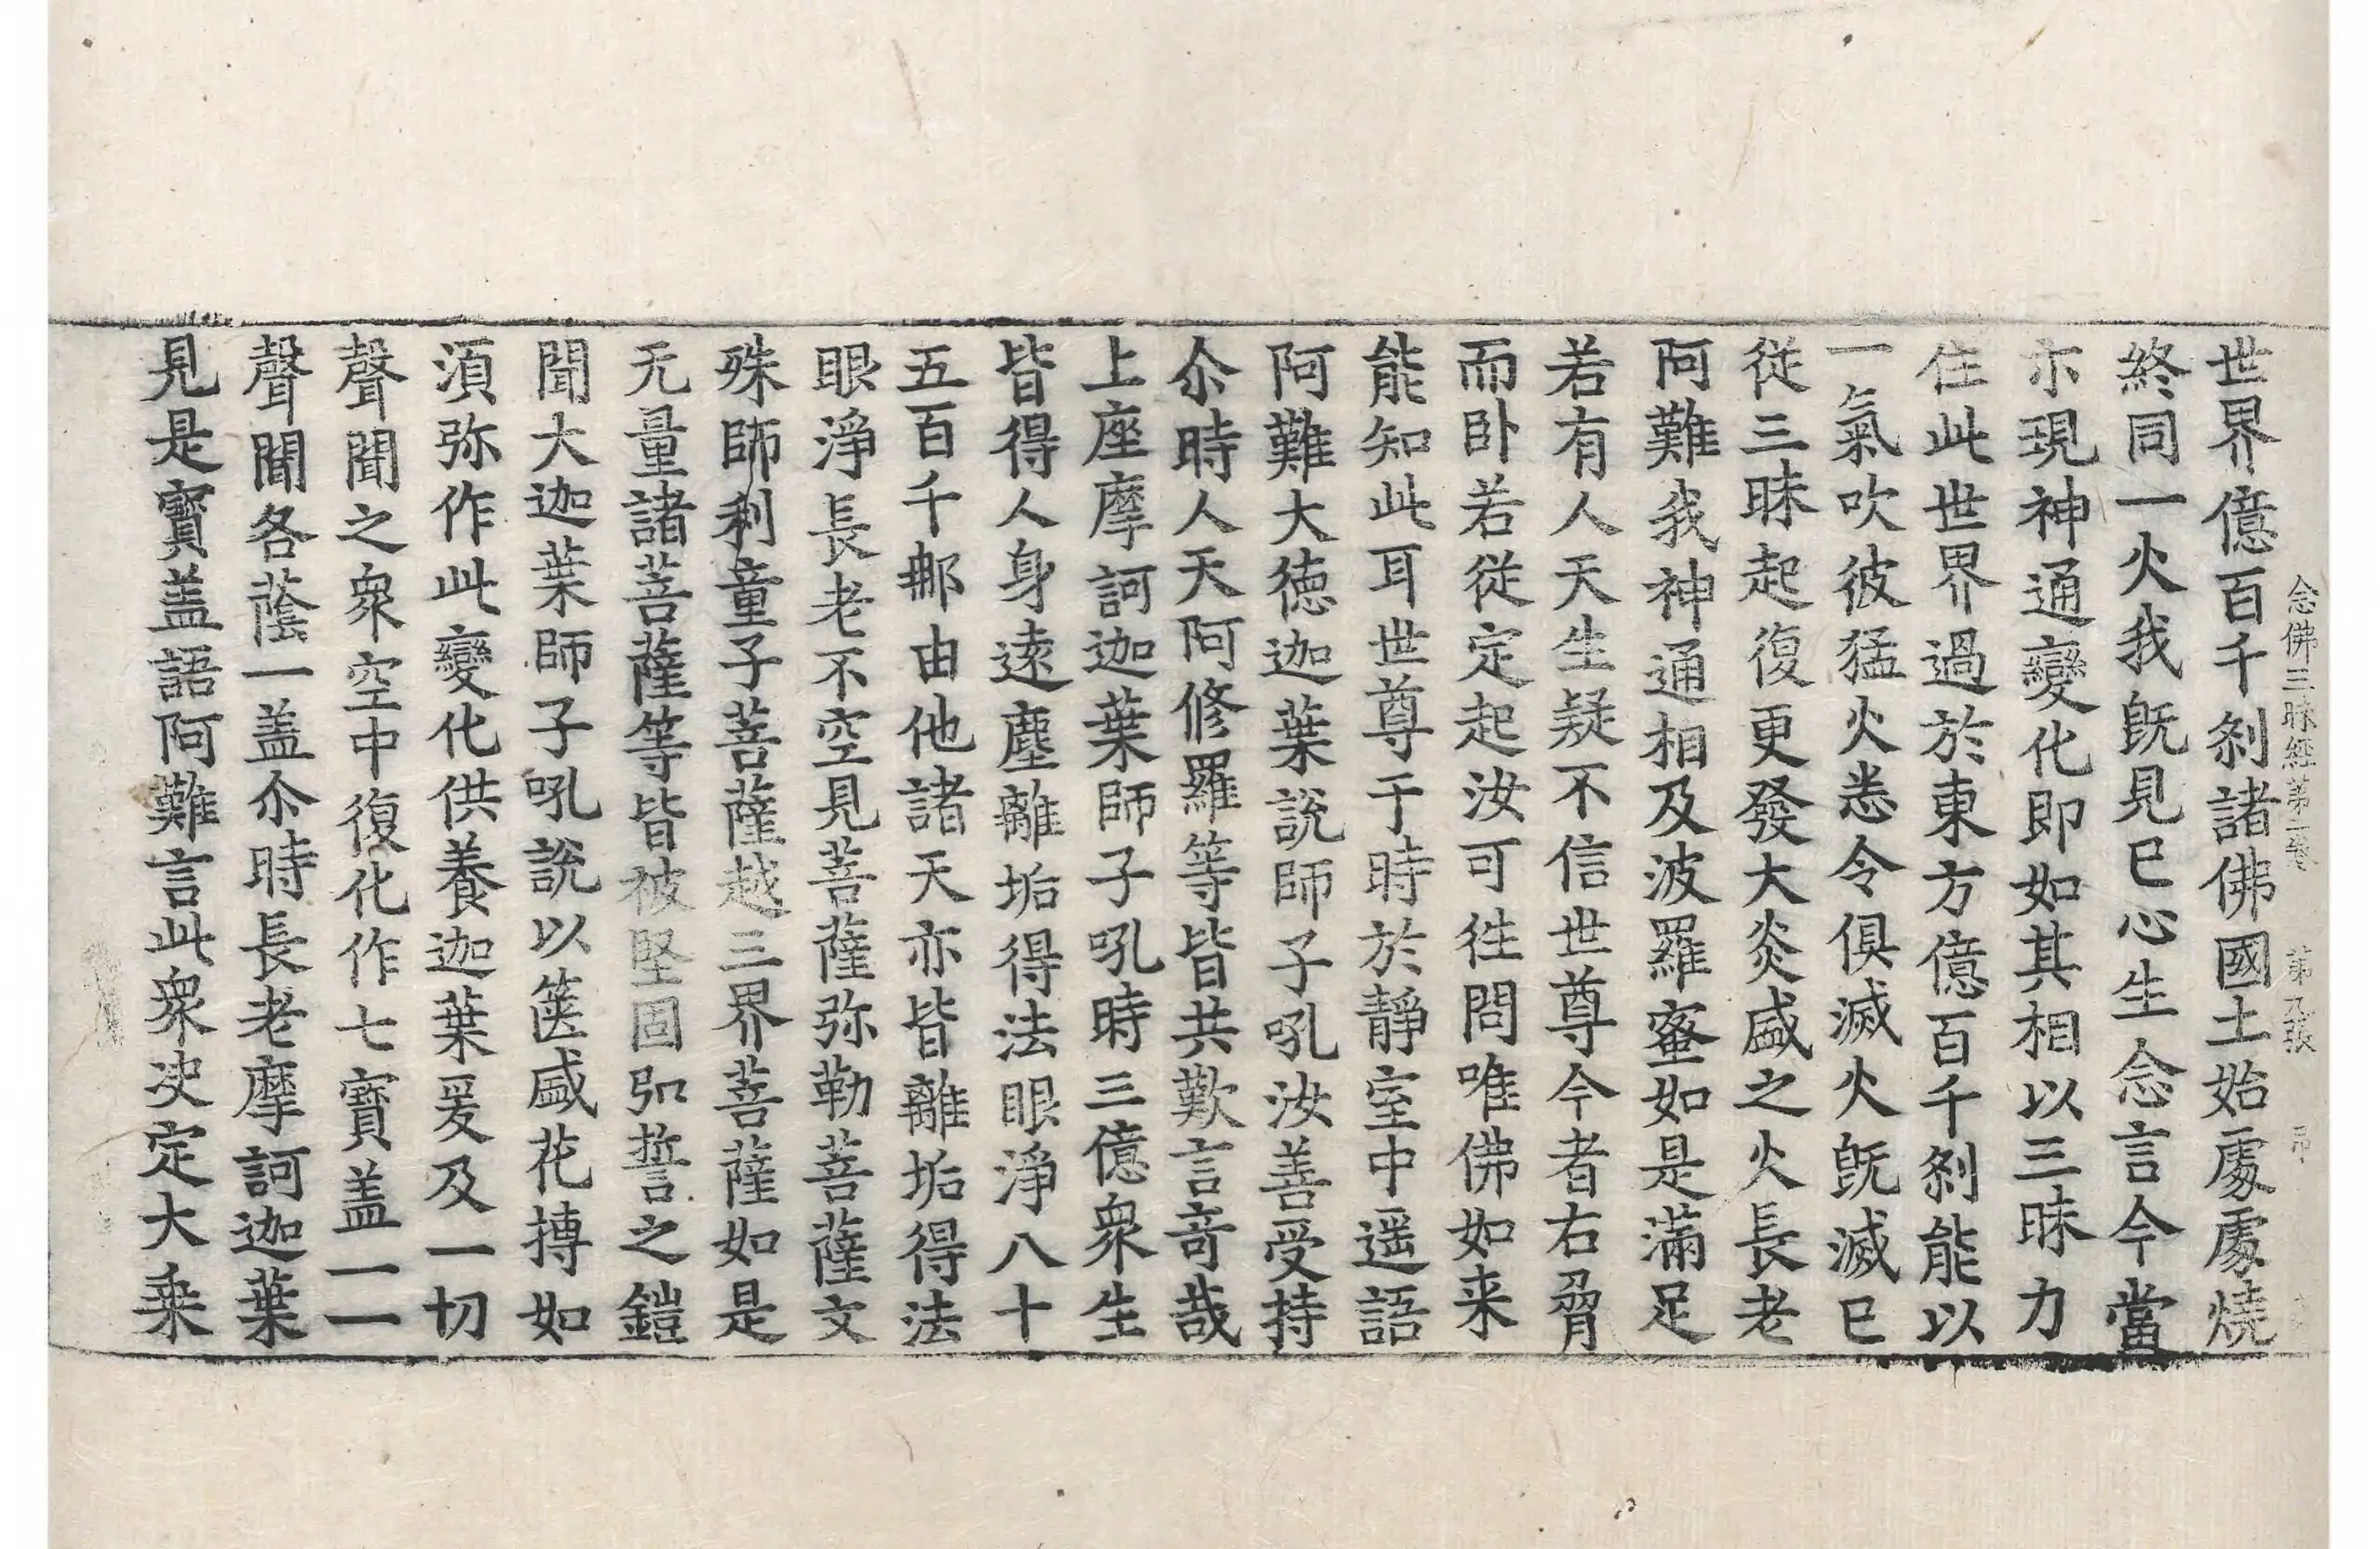 念佛三昧經第二卷 第九張 弔
世界億百千刹諸佛國土始處處燒
終同一火我旣見已心生念言今當
亦現神通變化即如其相以三昧力
住此世界過於東方億百千刹能以
一氣吹彼猛火悉令俱滅火旣滅已
從三昧起復更發大炎盛之火長老
阿難我神通相及波羅蜜如是滿足
若有人天生疑不信世尊今者右脅
而卧若從定起汝可徃問唯佛如来
能知此耳世尊于時於靜室中遥語
阿難大德迦葉說師子吼汝善受持
尒時人天阿修羅等皆共歎言竒哉
上座摩訶迦葉師子吼時三億衆生
皆得人身遠塵離垢得法眼淨八十
五百千那由他諸天亦皆離垢得法
眼淨長老不空見菩薩弥勒菩薩文
殊師利童子菩薩越三界菩薩如是
无量諸菩薩等皆被堅固弘誓之鎧
聞大迦葉師子吼說以篋盛花摶如
須弥作此變化供養迦葉爰及一切
聲聞之衆空中復化作七寶盖一一
聲聞各蔭一盖尒時長老摩訶迦葉
見是寶盖語阿難言此衆决定大乗